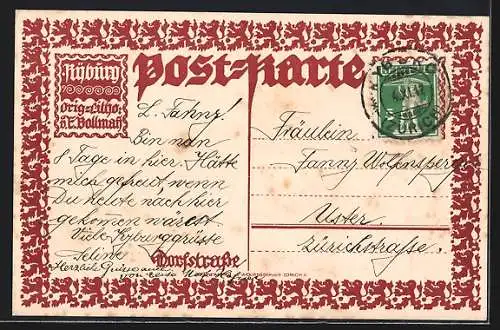 Kyburg
Orig=Litho:
v. E. Bollmañ
Post=Karte
ZÜRICH
L. Fanny!
Bin nun
8 Tage in hier. Hätte
mich gefreut, wenn
Du heute nach hier
gekommen wärest
Viele Kyburggrüsse
Seline
Dorfstraße
Herzliche Grüsse auch
von
Fräulein
Fanny Wolfensperger
Uster.
Zürichstrasse.